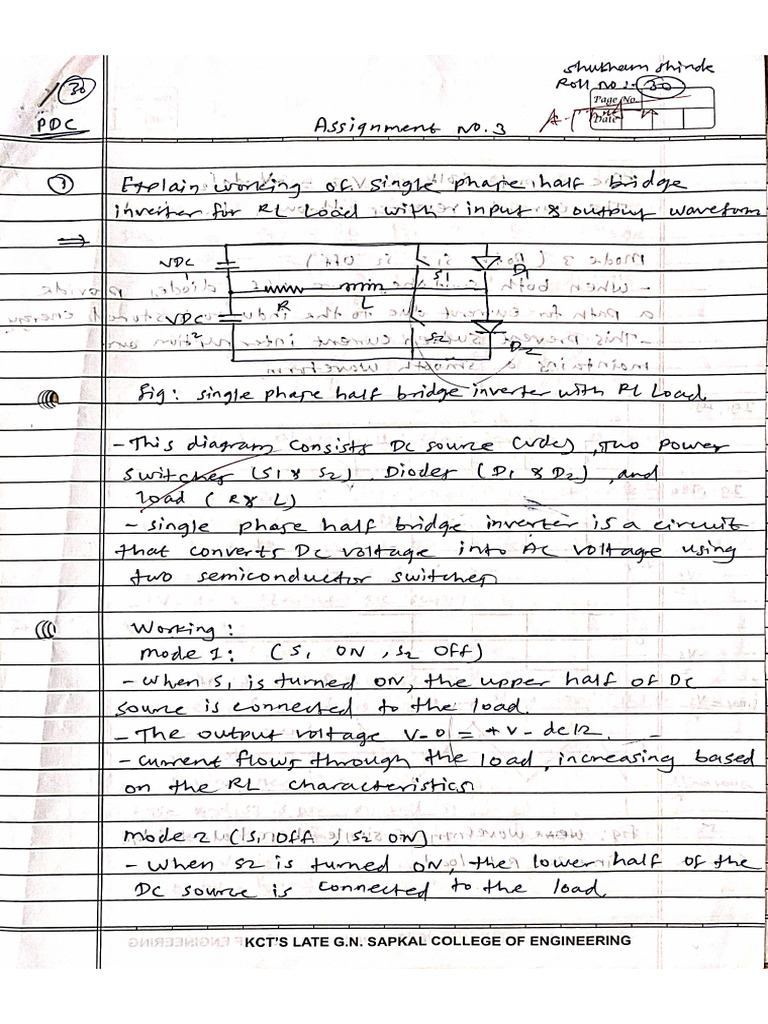 Shubham Shinde
Roll no :- 30
30
Page No.
Date
PDC
Assignment no. 3
1 Explain working of single phase half bridge
inverter for RL Load with input & output waveform
⇒
VDC
1
S1
D1
R
L
VDC
2
S2
D2
fig: single phase half bridge inverter with RL Load
- This diagram consists DC source (Vdc), Two power
switches (S1 & S2), Diodes (D1 & D2), and
load (R & L)
- single phase half bridge inverter is a circuit
that converts DC voltage into AC voltage using
two semiconductor switches
Working :
mode 1: (S1 ON, S2 Off)
- when S1 is turned ON, the upper half of DC
source is connected to the load.
- The output voltage V-0 = +V-dc/2.
- current flows through the load, increasing based
on the RL characteristics
mode 2 (S1 Off, S2 on)
- when S2 is turned ON, the lower half of the
DC source is connected to the load.
KCT'S LATE G.N. SAPKAL COLLEGE OF ENGINEERING